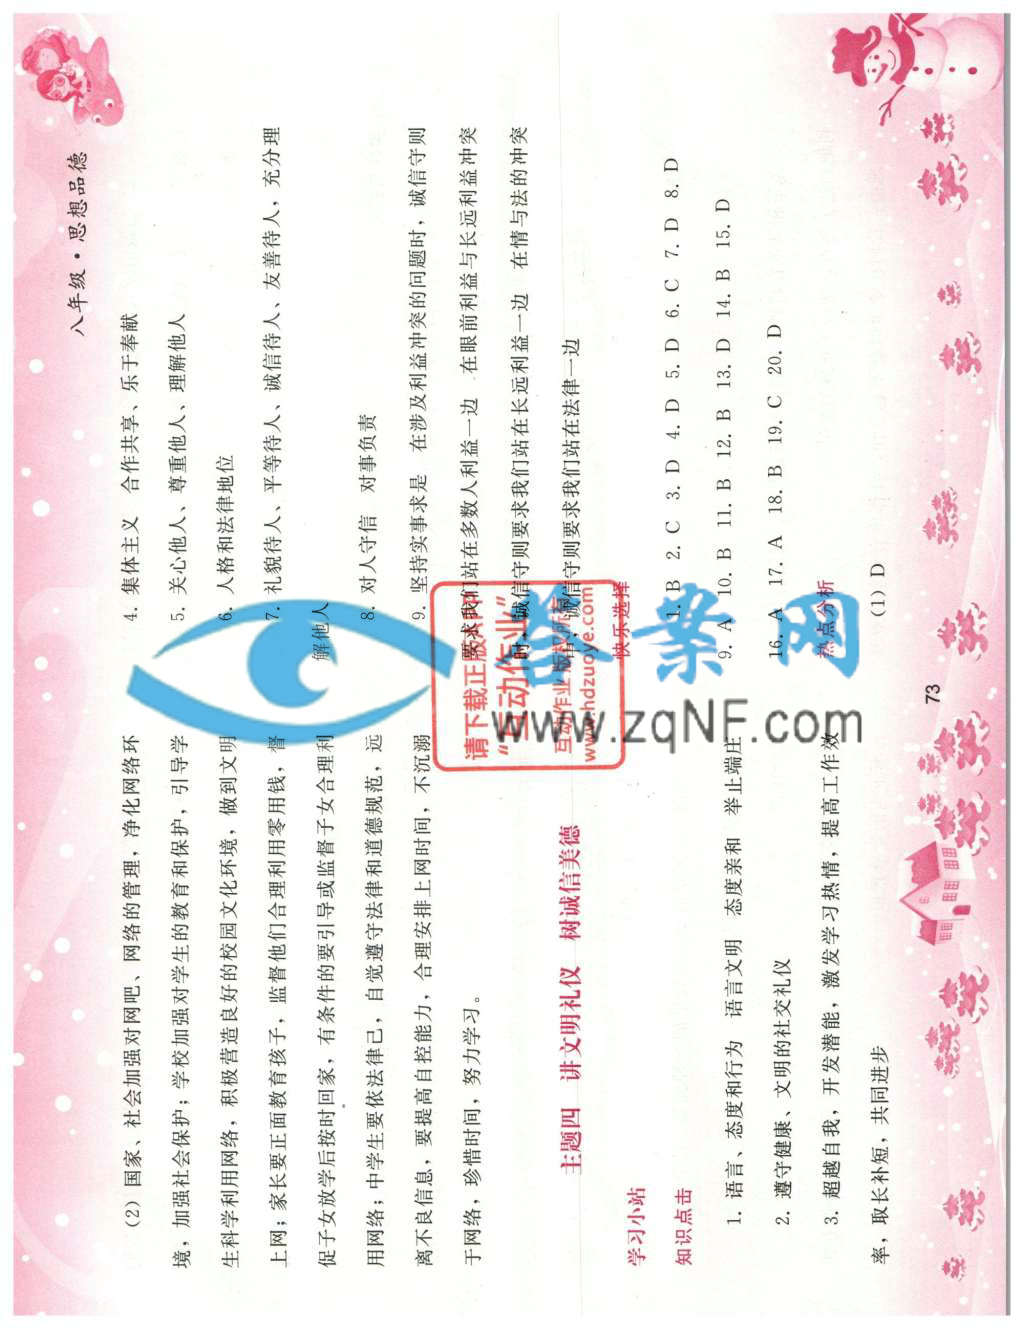 八年级·思想品德
(2) 国家、社会加强对网吧、网络的管理，净化网络环
境，加强社会保护；学校加强对学生的教育和保护，引导学
生科学利用网络，积极营造良好的校园文化环境，做到文明
上网；家长要正面教育孩子，监督他们合理利用零用钱，督
促子女放学后按时回家，有条件的要引导或监督子女合理利
用网络；中学生要依法律己，自觉遵守法律和道德规范，远
离不良信息，要提高自控能力，合理安排上网时间，不沉溺
于网络，珍惜时间，努力学习。
主题四 讲文明礼仪 树诚信美德
学习小站
知识点击
1. 语言、态度和行为 语言文明 态度亲和 举止端庄
2. 遵守健康、文明的社交礼仪
3. 超越自我，开发潜能，激发学习热情，提高工作效
率，取长补短，共同进步
4. 集体主义 合作共享、乐于奉献
5. 关心他人、尊重他人、理解他人
6. 人格和法律地位
7. 礼貌待人、平等待人、诚信待人、友善待人，充分理
解他人
8. 对人守信 对事负责
9. 坚持实事求是 在涉及利益冲突的问题时，诚信守则
要求我们站在多数人利益一边 在眼前利益与长远利益冲突
时，诚信守则要求我们站在长远利益一边 在情与法的冲突
诚信守则要求我们站在法律一边
快乐选择
1. B 2. C 3. D 4. D 5. D 6. C 7. D 8. D
9. A 10. B 11. B 12. B 13. D 14. B 15. D
16. A 17. A 18. B 19. C 20. D
热点分析
(1) D
73
请下载正版APP
“互动作业”
互动作业 版权所有
www.hdzuoye.com
答案网
www.zqNF.com